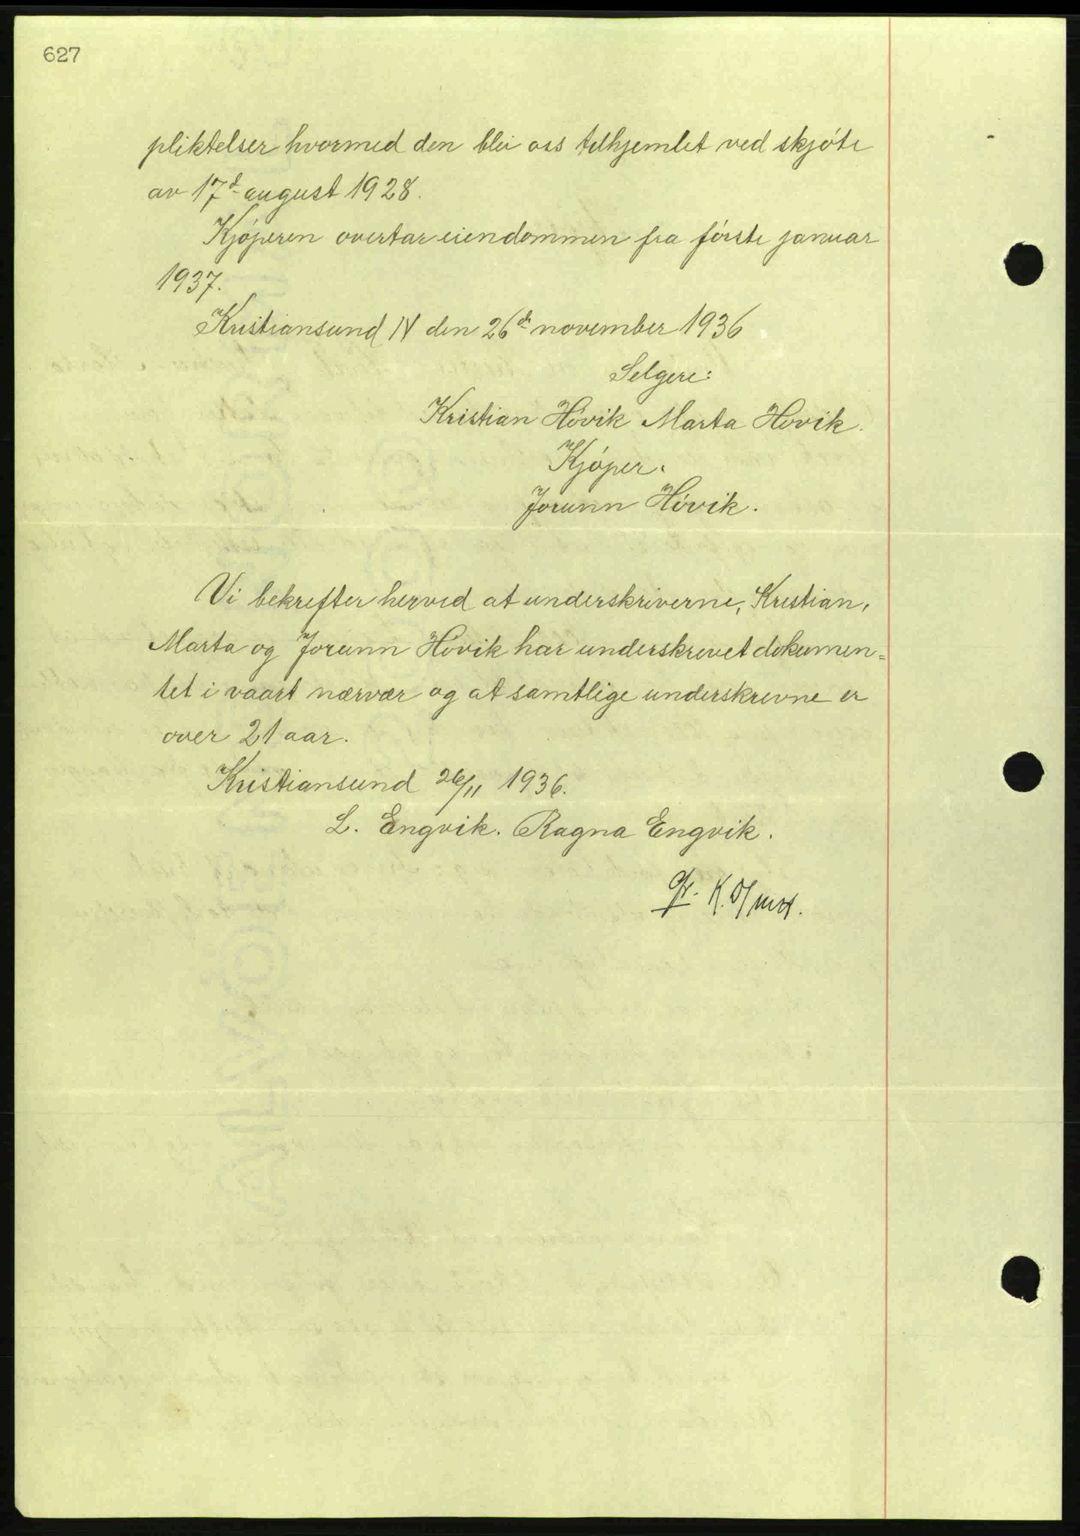 627
pliktelser hvormed den blei oss tilhjemlet ved skjøte
av 17d august 1928.
Kjøperen overtar eiendommen fra første januar
1937.
Kristiansund N den 26de november 1936
Selgere:
Kristian Hóvik Marta Hovik.
Kjøper.
Jorunn Hóvik.
Vi bekrefter herved at underskriverne, Kristian,
Marta og Jorunn Hovik har underskrevet dokumen=
tet i vaart nærvær og at samtlige underskrevne er
over 21 aar.
Kristiansund 26/11 1936.
L. Engvik. Ragna Engvik.
K.